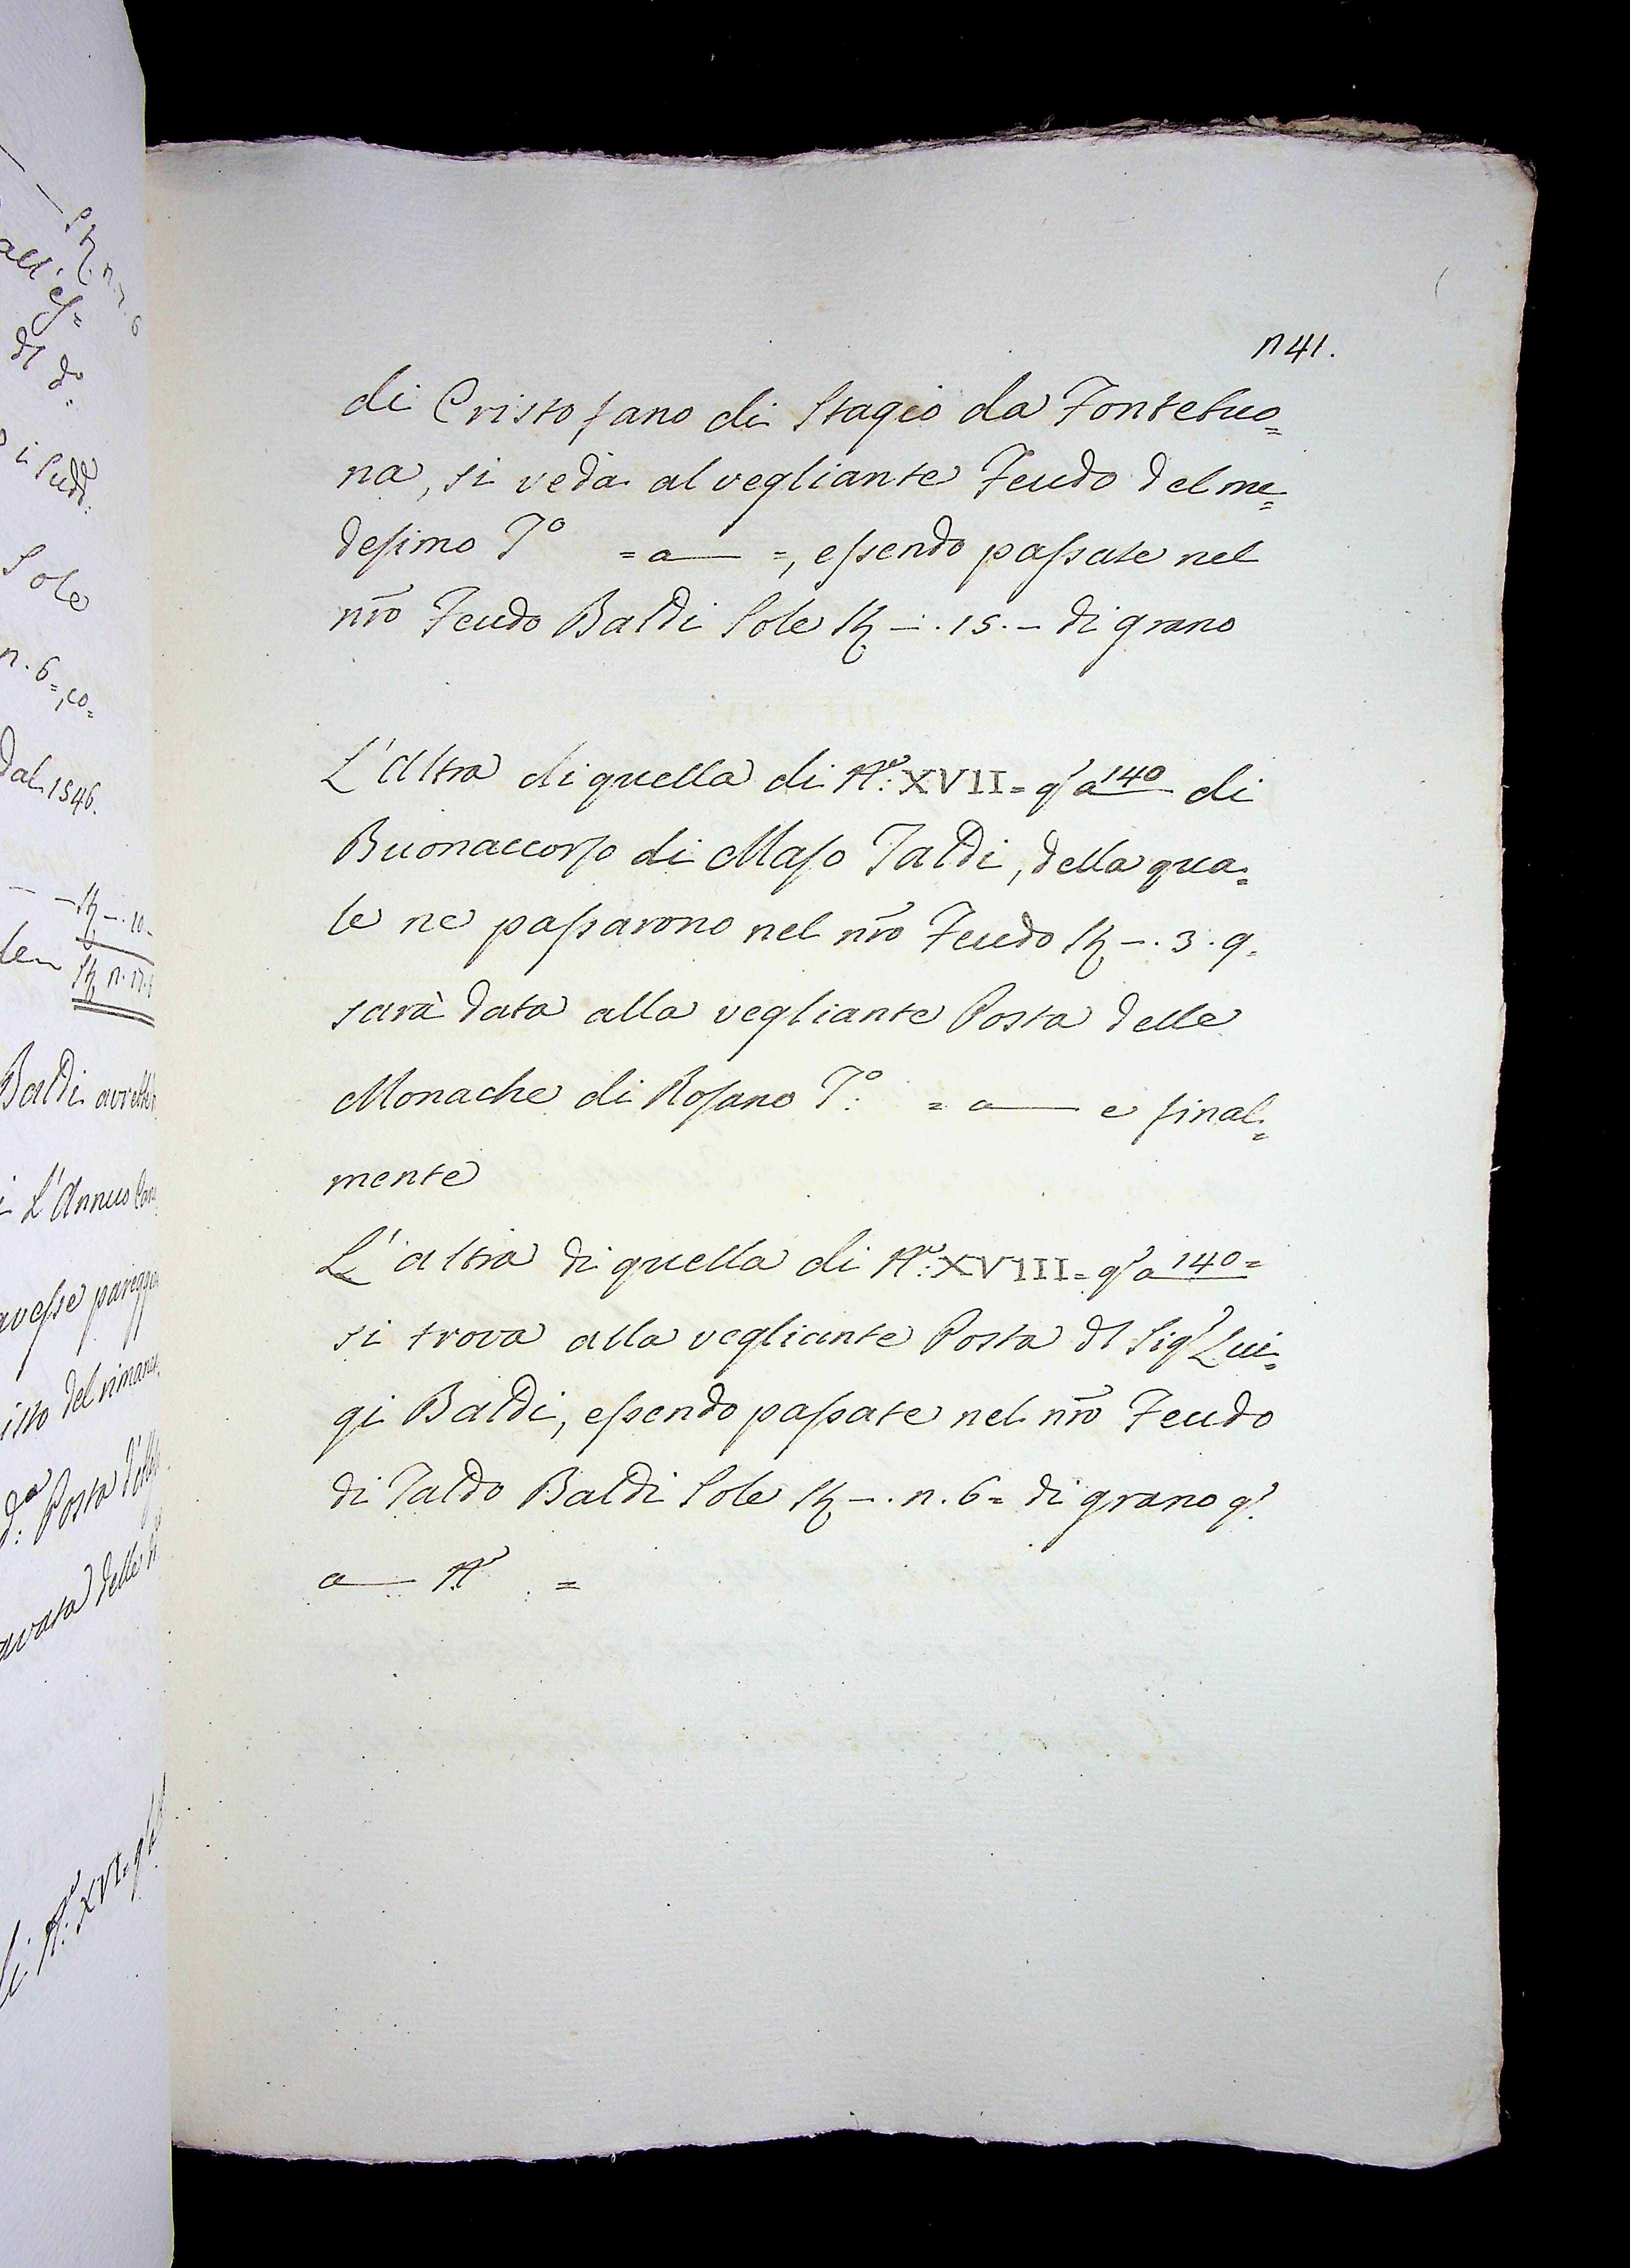 n 41.
di Cristofano di Stagio da Fontebuo=
na, si veda al vegliante Feudo del me=
desimo T.º =a— =, essendo passate nel
nr̃o Feudo Baldi Sole —. 15. – di grano
L'altra di quella di Nº: XVII= qº a 140 di
Buonaccorso di Maso Taldi, della qua=
le ne passarono nel nr̃o Feudo —. 3. 9.
sarà data alla vegliante Posta delle
Monache di Rosano T.º: = a— e final=
mente
L'altra di quella di Nº: XVIII= qº a 140=
si trova alla vegliante Posta dl Sigr Lui=
gi Baldi, essendo passate nel nr̃o Feudo
di Taldo Baldi Sole —. n. 6= di grano qº
a— Nº =
all'es=
dl do=
i Sudd:
Sole
n. 6=, co=
dal 1546.
—. 10–
Baldi
L'Annuo
avesse
del
d.ª Posta
delle
XVI=